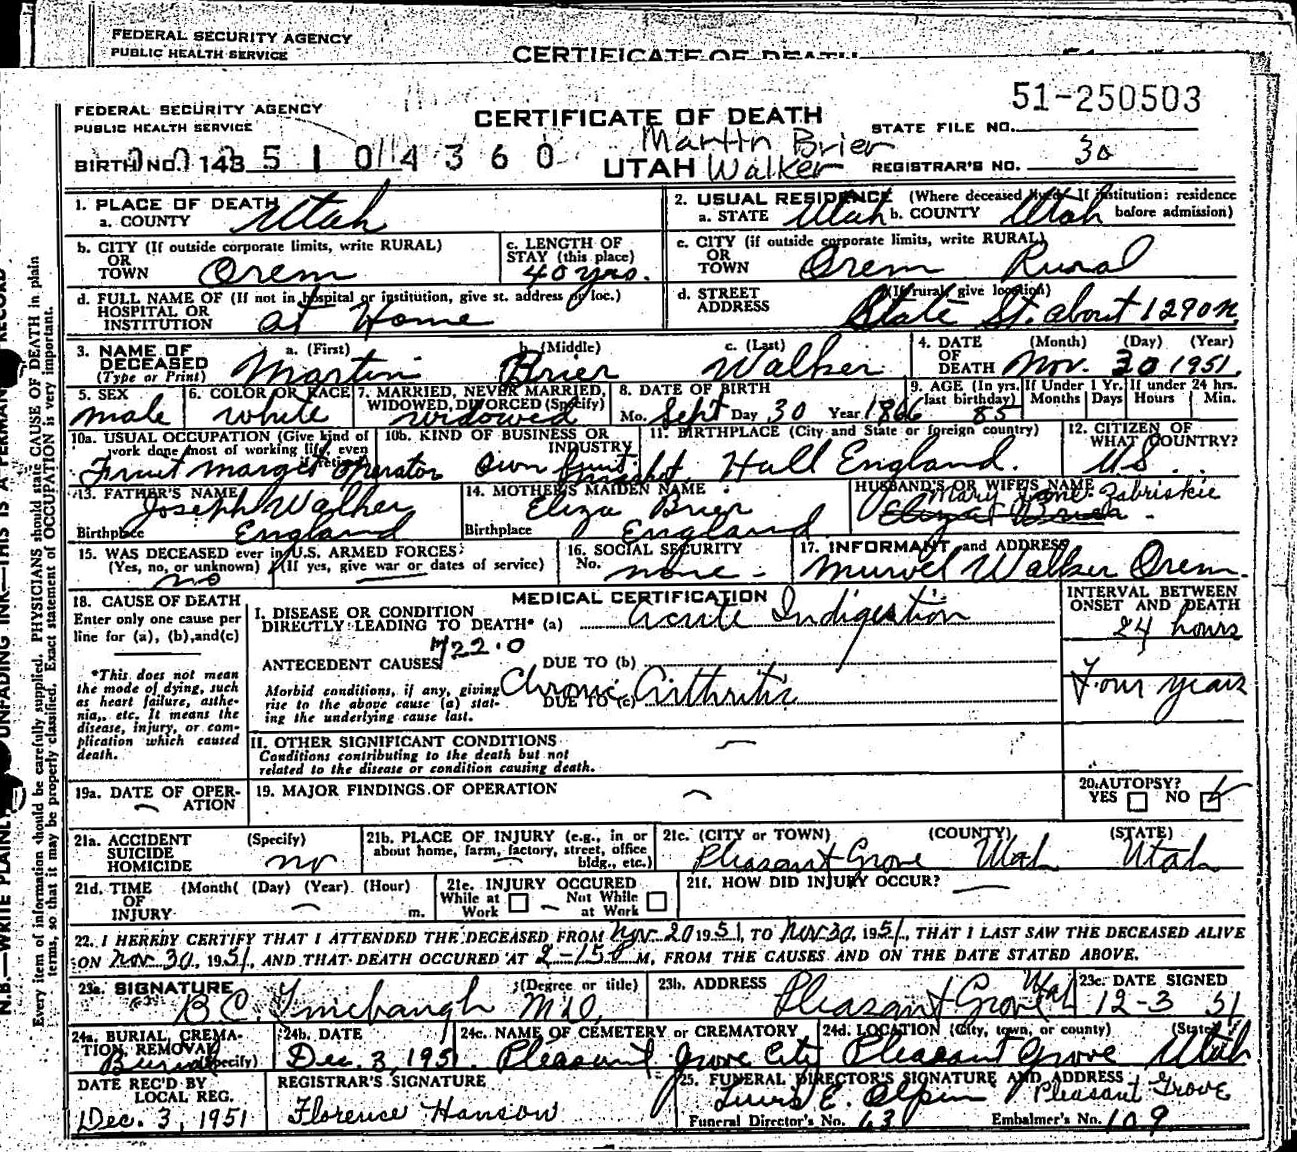 FEDERAL SECURITY AGENCY
PUBLIC HEALTH SERVICE
CERTIFICATE OF DEATH
FEDERAL SECURITY AGENCY
PUBLIC HEALTH SERVICE
CERTIFICATE OF DEATH
51-250503
STATE FILE NO.
Martin Brier
BIRTH NO. 143 5 1 0 4 3 6 0
UTAH Walker
REGISTRAR'S NO. 30
1. PLACE OF DEATH
a. COUNTY Utah
2. USUAL RESIDENCE (Where deceased lived. If institution: residence
a. STATE Utah b. COUNTY Utah before admission)
b. CITY (If outside corporate limits, write RURAL)
OR
TOWN Orem
c. LENGTH OF
STAY (this place)
40 yrs.
c. CITY (if outside corporate limits, write RURAL)
OR
TOWN Orem Rural
d. FULL NAME OF (If not in hospital or institution, give st. address or loc.)
HOSPITAL OR
INSTITUTION at Home
d. STREET (If rural, give location)
ADDRESS State St. about 1290 N.
3. NAME OF DECEASED (Type or Print)
a. (First) b. (Middle) c. (Last)
Martin Brier Walker
4. DATE OF DEATH (Month) (Day) (Year)
Nov. 30 1951
5. SEX
male
6. COLOR OR RACE
white
7. MARRIED, NEVER MARRIED,
WIDOWED, DIVORCED (Specify)
widowed
8. DATE OF BIRTH
Mo. Sept Day 30 Year 1866
9. AGE (In yrs. last birthday)
85
If Under 1 Yr.
Months Days
If under 24 hrs.
Hours Min.
10a. USUAL OCCUPATION (Give kind of
work done most of working life, even
if retired)
Fruit market operator
10b. KIND OF BUSINESS OR
INDUSTRY
Own fruit market
11. BIRTHPLACE (City and State or foreign country)
Hull England.
12. CITIZEN OF
WHAT COUNTRY?
U.S.
13. FATHER'S NAME
Joseph Walker
Birthplace England
14. MOTHER'S MAIDEN NAME
Eliza Brier
Birthplace England
HUSBAND'S OR WIFE'S NAME
Mary Jane Zabriskie
15. WAS DECEASED ever in U.S. ARMED FORCES?
(Yes, no, or unknown) (If yes, give war or dates of service)
no
16. SOCIAL SECURITY
No. none
17. INFORMANT and ADDRESS
Murvel Walker Orem.
MEDICAL CERTIFICATION
18. CAUSE OF DEATH
Enter only one cause per
line for (a), (b), and (c)
*This does not mean
the mode of dying, such
as heart failure, asthe-
nia, etc. It means the
disease, injury, or com-
plication which caused
death.
I. DISEASE OR CONDITION
DIRECTLY LEADING TO DEATH* (a) Acute Indigestion
INTERVAL BETWEEN
ONSET AND DEATH
24 hours
722.0
ANTECEDENT CAUSES DUE TO (b)
Morbid conditions, if any, giving
rise to the above cause (a) stat-
ing the underlying cause last.
DUE TO (c) Chronic Arthritis
Four years
II. OTHER SIGNIFICANT CONDITIONS
Conditions contributing to the death but not
related to the disease or condition causing death.
19a. DATE OF OPER-
ATION
19. MAJOR FINDINGS OF OPERATION
20. AUTOPSY?
YES NO
21a. ACCIDENT (Specify)
SUICIDE
HOMICIDE no
21b. PLACE OF INJURY (e.g., in or
about home, farm, factory, street, office
bldg., etc.)
21c. (CITY or TOWN) (COUNTY) (STATE)
Pleasant Grove Utah Utah
21d. TIME (Month) (Day) (Year) (Hour)
OF
INJURY m.
21e. INJURY OCCURED
While at Work Not While at Work
21f. HOW DID INJURY OCCUR?
22. I HEREBY CERTIFY THAT I ATTENDED THE DECEASED FROM Nov 20 1951, TO Nov 30, 1951, THAT I LAST SAW THE DECEASED ALIVE
ON Nov 30, 1951, AND THAT DEATH OCCURED AT 2-15 P M, FROM THE CAUSES AND ON THE DATE STATED ABOVE.
23a. SIGNATURE (Degree or title)
B.C. Linebaugh M.D.
23b. ADDRESS
Pleasant Grove Utah
23c. DATE SIGNED
12-3 51
24a. BURIAL, CREMA-
TION REMOVAL
(Specify)
Burial
24b. DATE
Dec. 3, 1951.
24c. NAME OF CEMETERY or CREMATORY
Pleasant Grove City
24d. LOCATION (City, town, or county) (State)
Pleasant Grove Utah
DATE REC'D BY
LOCAL REG.
Dec. 3, 1951
REGISTRAR'S SIGNATURE
Florence Hanson
25. FUNERAL DIRECTOR'S SIGNATURE AND ADDRESS
E. Olpin Pleasant Grove
Funeral Director's No. 63 Embalmer's No. 109
N.B.—WRITE PLAINLY UNFADING INK—THIS IS A PERMANENT RECORD
Every item of information should be carefully supplied. PHYSICIANS should state CAUSE OF DEATH in plain
terms, so that it may be properly classified. Exact statement of OCCUPATION is very important.